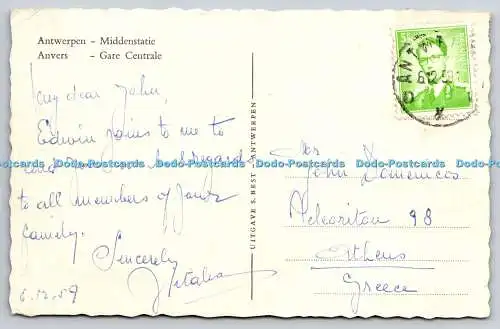 Antwerpen - Middenstatie
Anvers - Gare Centrale
My dear John,
Edwin joins to me to
send you our best regards
to all members of your
family.
Sincerely
Vitalia
6.12.59
UITGAVE S. BEST - ANTWERPEN
Mr
John Domenicos
98
Athens
Greece
Dodo-Postcards Dodo-Postcards Dodo-Postcards Dodo-Postcards Dodo-Postcards Dodo-Postcards